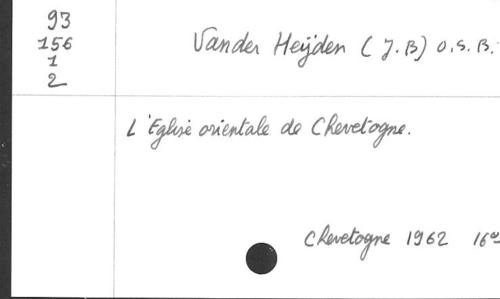 93
156
1
2
Vander Heijden (J.B) O.S.B.
L'Eglise orientale de Chevetogne.
Chevetogne 1962 16°